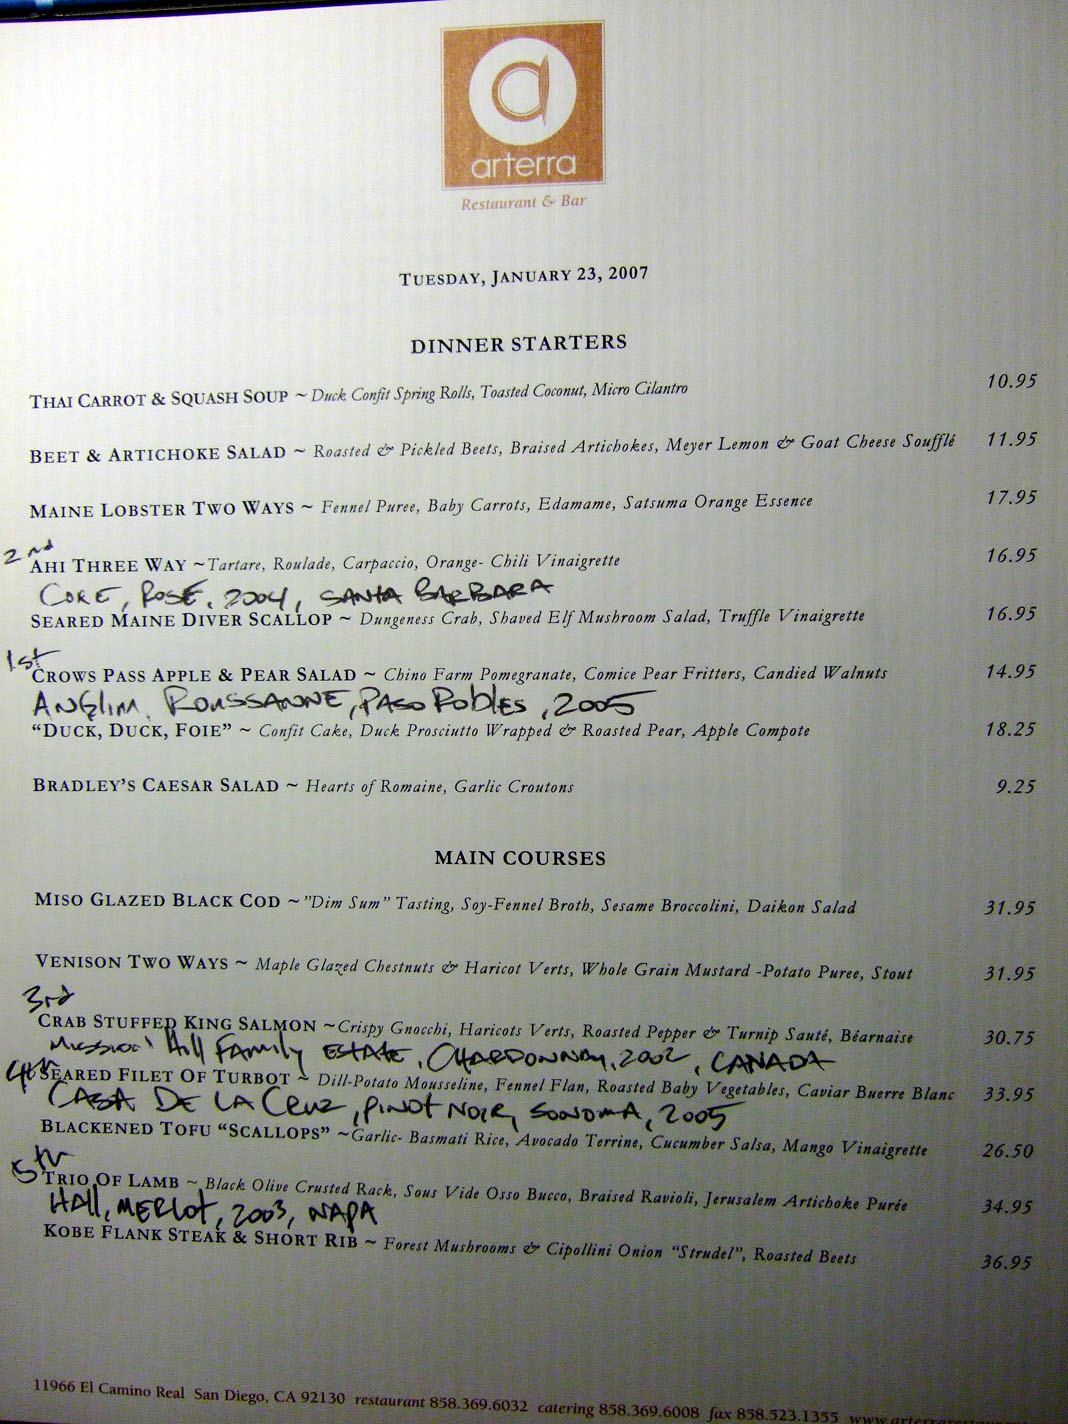 a
arterra
Restaurant & Bar
TUESDAY, JANUARY 23, 2007
DINNER STARTERS
THAI CARROT & SQUASH SOUP ~ Duck Confit Spring Rolls, Toasted Coconut, Micro Cilantro 10.95
BEET & ARTICHOKE SALAD ~ Roasted & Pickled Beets, Braised Artichokes, Meyer Lemon & Goat Cheese Soufflé 11.95
MAINE LOBSTER TWO WAYS ~ Fennel Puree, Baby Carrots, Edamame, Satsuma Orange Essence 17.95
2nd
AHI THREE WAY ~Tartare, Roulade, Carpaccio, Orange- Chili Vinaigrette 16.95
CORE, ROSÉ, 2004, SANTA BARBARA
SEARED MAINE DIVER SCALLOP ~ Dungeness Crab, Shaved Elf Mushroom Salad, Truffle Vinaigrette 16.95
1st
CROWS PASS APPLE & PEAR SALAD ~ Chino Farm Pomegranate, Comice Pear Fritters, Candied Walnuts 14.95
ANGLIM, ROUSSANNE, PASO ROBLES, 2005
"DUCK, DUCK, FOIE" ~ Confit Cake, Duck Prosciutto Wrapped & Roasted Pear, Apple Compote 18.25
BRADLEY'S CAESAR SALAD ~ Hearts of Romaine, Garlic Croutons 9.25
MAIN COURSES
MISO GLAZED BLACK COD ~"Dim Sum" Tasting, Soy-Fennel Broth, Sesame Broccolini, Daikon Salad 31.95
VENISON TWO WAYS ~ Maple Glazed Chestnuts & Haricot Verts, Whole Grain Mustard -Potato Puree, Stout 31.95
3rd
CRAB STUFFED KING SALMON ~Crispy Gnocchi, Haricots Verts, Roasted Pepper & Turnip Sauté, Béarnaise 30.75
Mission Hill Family ESTATE, CHARDONNAY, 2002, CANADA
4th
SEARED FILET OF TURBOT ~ Dill-Potato Mousseline, Fennel Flan, Roasted Baby Vegetables, Caviar Buerre Blanc 33.95
CASA DE LA CRUZ, PINOT NOIR, SONOMA, 2005
BLACKENED TOFU "SCALLOPS" ~Garlic- Basmati Rice, Avocado Terrine, Cucumber Salsa, Mango Vinaigrette 26.50
5th
TRIO OF LAMB ~ Black Olive Crusted Rack, Sous Vide Osso Bucco, Braised Ravioli, Jerusalem Artichoke Purée 34.95
HALL, MERLOT, 2003, NAPA
KOBE FLANK STEAK & SHORT RIB ~ Forest Mushrooms & Cipollini Onion "Strudel", Roasted Beets 36.95
11966 El Camino Real San Diego, CA 92130 restaurant 858.369.6032 catering 858.369.6008 fax 858.523.1355